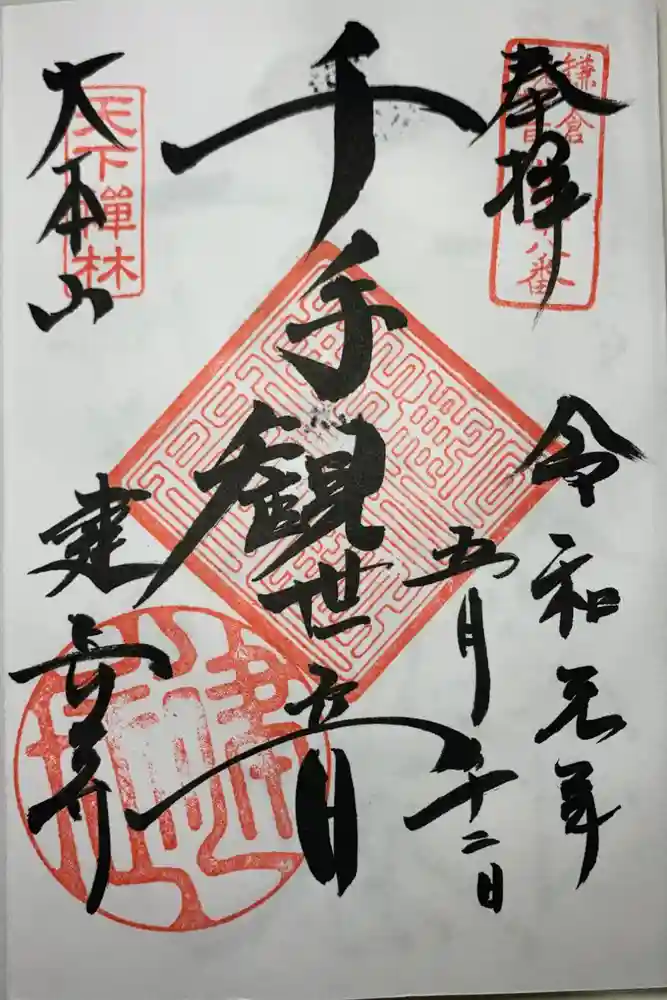 鎌倉
八番
奉拝
令和元年
五月十二日
千手観世音
天下禪林
大本山
建長寺